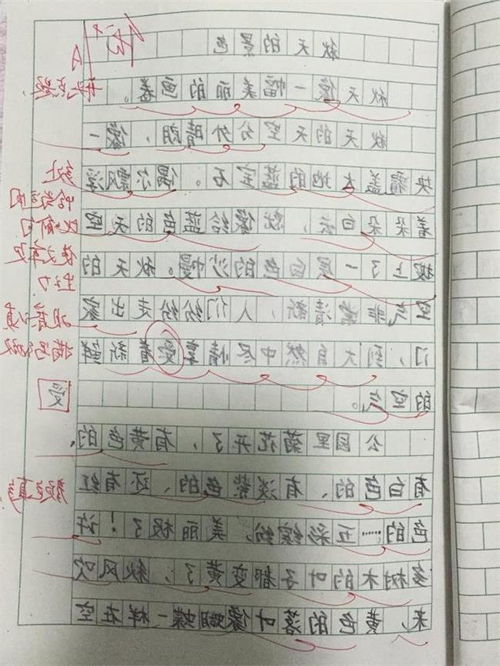 秋天的景色
秋天像一幅美丽的画卷。
秋天的天空分外晴朗,像一
块覆盖大地的蓝宝石。偶尔飘浮
着朵朵白云,就像给蓝色的天空
披上了一层白色的沙幔。秋天的
空气非常清新,人们纷纷走出家
门,到大自然中尽情享受着新鲜
的空气。
受
公园里菊花开了,有黄色的,
有白色的、有淡紫色的、还有红
色的……五彩缤纷,美丽极了!许
多树木的叶子都变黄了;秋风吹
来,黄色的落叶像蝴蝶一样在空